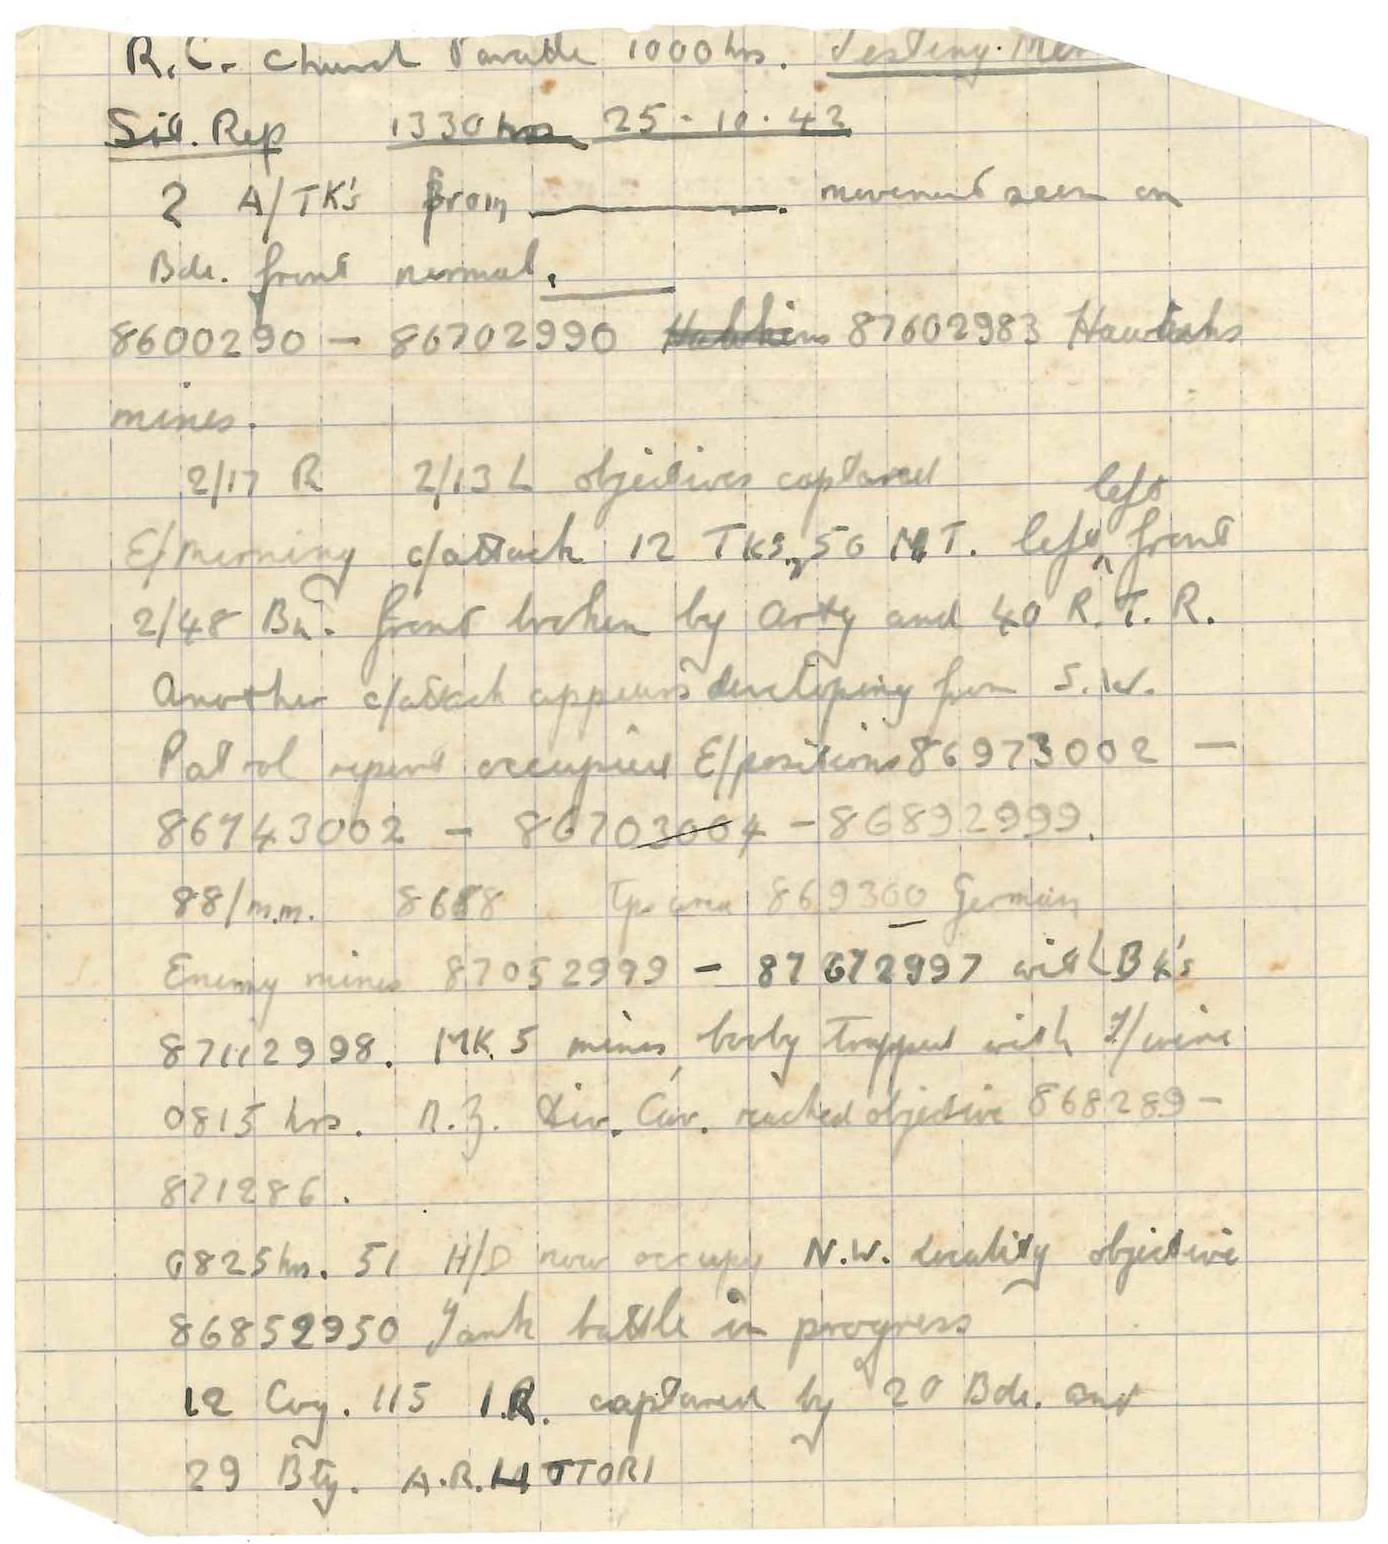 R.C. Church Parade 1000 hrs. Testing.
Sit. Rep 1330 hrs 25-10-42
2 A/TK's from ________. movement seen on
Bde. front normal.
8600290 - 86702990 87602983 Hawkins
mines.
2/17 R 2/13 L objectives captured
left
E/morning c/attack 12 TKS, 50 MT. left front
2/48 Bn. front broken by Arty and 40 R.T.R.
Another c/attack appears developing from S.W.
Patrol report occupied E/positions 86973002 -
86743002 - 86703004 - 86892999.
88/m.m. 8688 Tps area 869300 German
Enemy mines 87052999 - 87672997 with BK's
87112998. MK. 5 mines, booby trapped with T/wire
0815 hrs. N.Z. Div. Cav. reached objective 868289 -
871286.
0825 hrs. 51 H/D now occupy N.W. Locality objective
86852950 Tank battle in progress
12 Coy. 115 I.R. captured by 20 Bde. and
29 Bty. A.R.